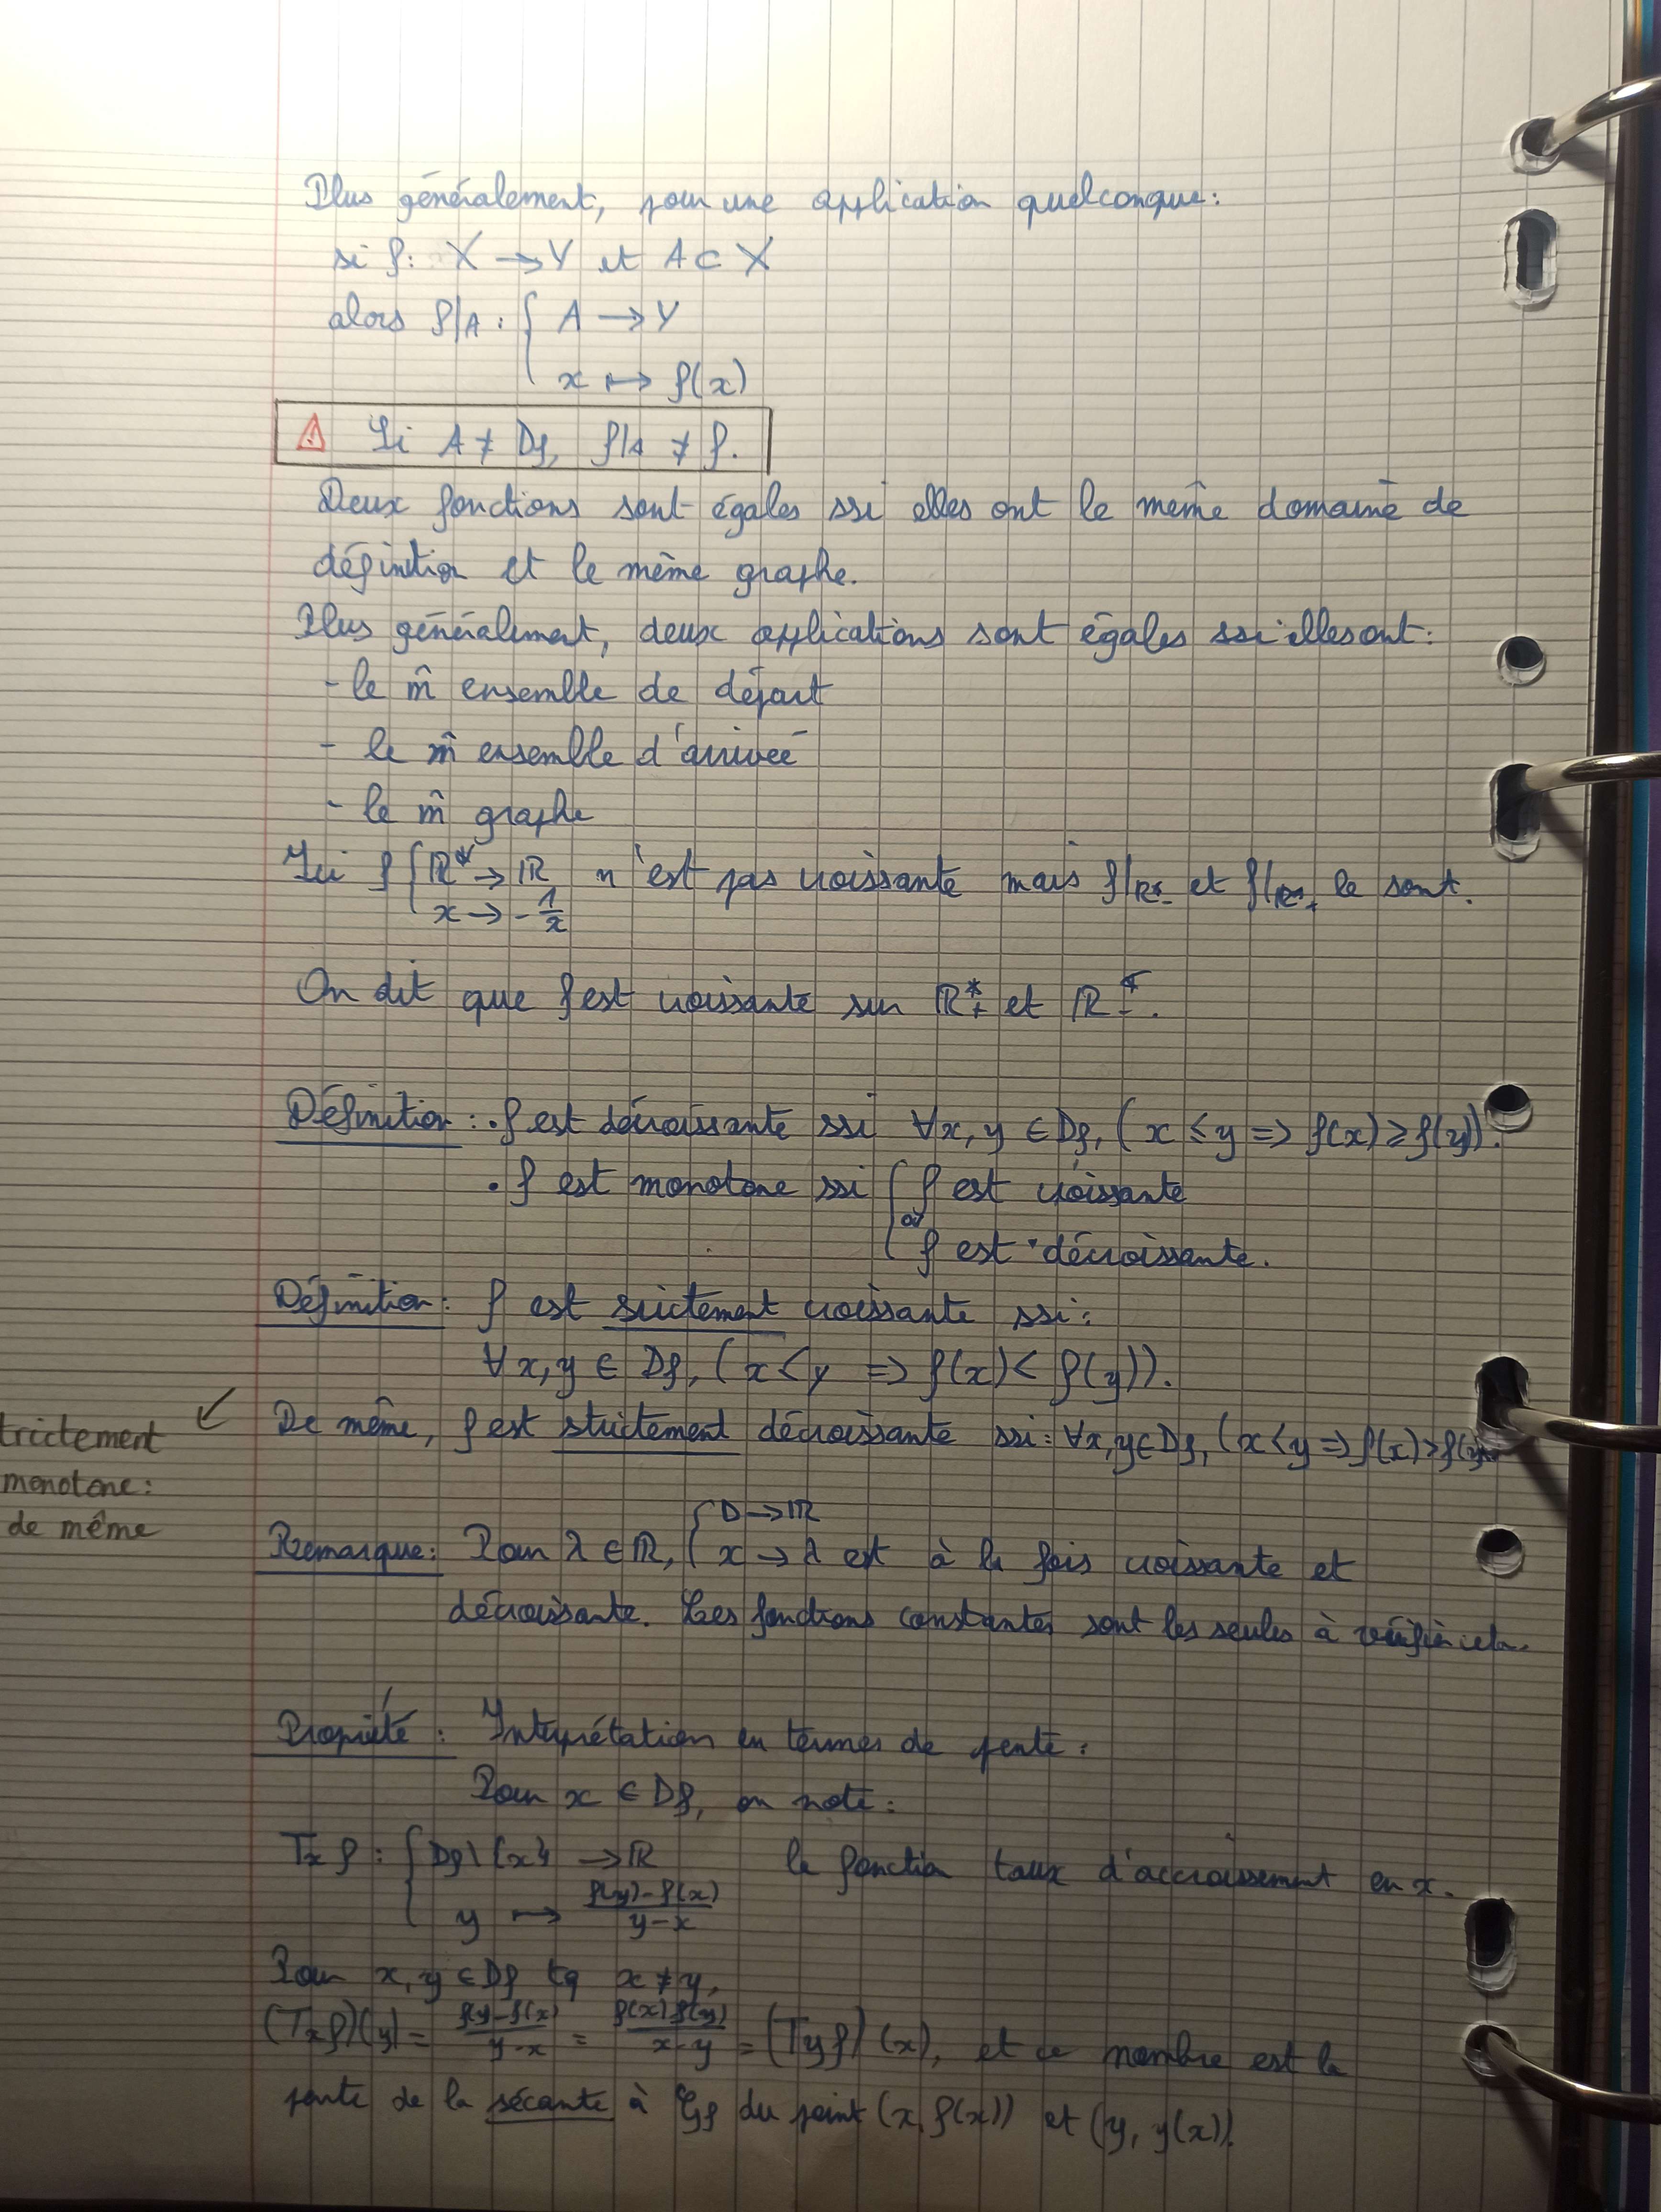 Plus généralement, pour une application quelconque :
si f : X → Y et A ⊂ X
alors f|A : { A → Y
x ↦ f(x)
⚠ Si A ≠ Df, f|A ≠ f.
Deux fonctions sont égales ssi elles ont le même domaine de
définition et le même graphe.
Plus généralement, deux applications sont égales ssi elles ont :
- le m̂ ensemble de départ
- le m̂ ensemble d'arrivée
- le m̂ graphe
Ici f { ℝ* → ℝ n'est pas croissante mais f|ℝ*₋ et f|ℝ*₊ le sont.
x → -1/x
On dit que f est croissante sur ℝ*₊ et ℝ*₋.
Définition : • f est décroissante ssi ∀x, y ∈ Df, (x ≤ y => f(x) ≥ f(y)).
• f est monotone ssi { f est croissante
ou
f est décroissante.
Définition : f est strictement croissante ssi :
∀x, y ∈ Df, (x < y => f(x) < f(y)).
De même, f est strictement décroissante ssi : ∀x, y ∈ Df, (x < y => f(x) > f(y)
↙
trictement
monotone :
de même
Remarque : Pour λ ∈ ℝ, { D → ℝ
x → λ est à la fois croissante et
décroissante. Les fonctions constantes sont les seules à vérifier cela.
Propriété : Interprétation en termes de pente :
Pour x ∈ Df, on note :
Tx f : { Df \ {x} → ℝ la fonction taux d'accroissement en x.
y ↦ (f(y) - f(x))/(y - x)
Pour x, y ∈ Df tq x ≠ y,
(Tx f)(y) = (f(y) - f(x))/(y - x) = (f(x) - f(y))/(x - y) = (Ty f)(x), et ce nombre est la
pente de la sécante à Cf du point (x, f(x)) et (y, y(x)).